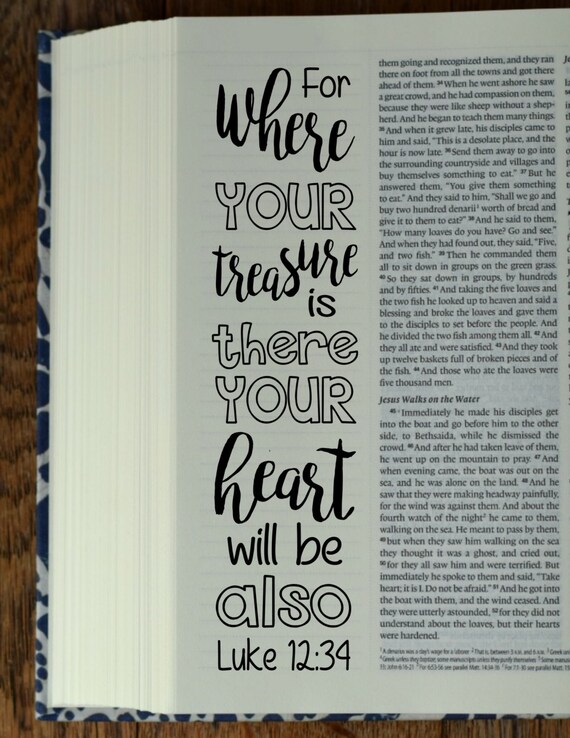 For
where
YOUR
treasure
is
there
YOUR
heart
will be
also
Luke 12:34
them going and recognized them, and they ran
there on foot from all the towns and got there
ahead of them. 34 When he went ashore he saw
a great crowd, and he had compassion on them,
because they were like sheep without a shep-
herd. And he began to teach them many things.
35 And when it grew late, his disciples came to
him and said, "This is a desolate place, and the
hour is now late. 36 Send them away to go into
the surrounding countryside and villages and
buy themselves something to eat." 37 But he
answered them, "You give them something
to eat." And they said to him, "Shall we go and
buy two hundred denarii¹ worth of bread and
give it to them to eat?" 38 And he said to them,
"How many loaves do you have? Go and see."
And when they had found out, they said, "Five,
and two fish." 39 Then he commanded them
all to sit down in groups on the green grass.
40 So they sat down in groups, by hundreds
and by fifties. 41 And taking the five loaves and
the two fish he looked up to heaven and said a
blessing and broke the loaves and gave them
to the disciples to set before the people. And
he divided the two fish among them all. 42 And
they all ate and were satisfied. 43 And they took
up twelve baskets full of broken pieces and of
the fish. 44 And those who ate the loaves were
five thousand men.
Jesus Walks on the Water
45 Immediately he made his disciples get
into the boat and go before him to the other
side, to Bethsaida, while he dismissed the
crowd. 46 And after he had taken leave of them,
he went up on the mountain to pray. 47 And
when evening came, the boat was out on the
sea, and he was alone on the land. 48 And he
saw that they were making headway painfully,
for the wind was against them. And about the
fourth watch of the night² he came to them,
walking on the sea. He meant to pass by them,
49 but when they saw him walking on the sea
they thought it was a ghost, and cried out,
50 for they all saw him and were terrified. But
immediately he spoke to them and said, "Take
heart; it is I. Do not be afraid." 51 And he got into
the boat with them, and the wind ceased. And
they were utterly astounded, 52 for they did not
understand about the loaves, but their hearts
were hardened.